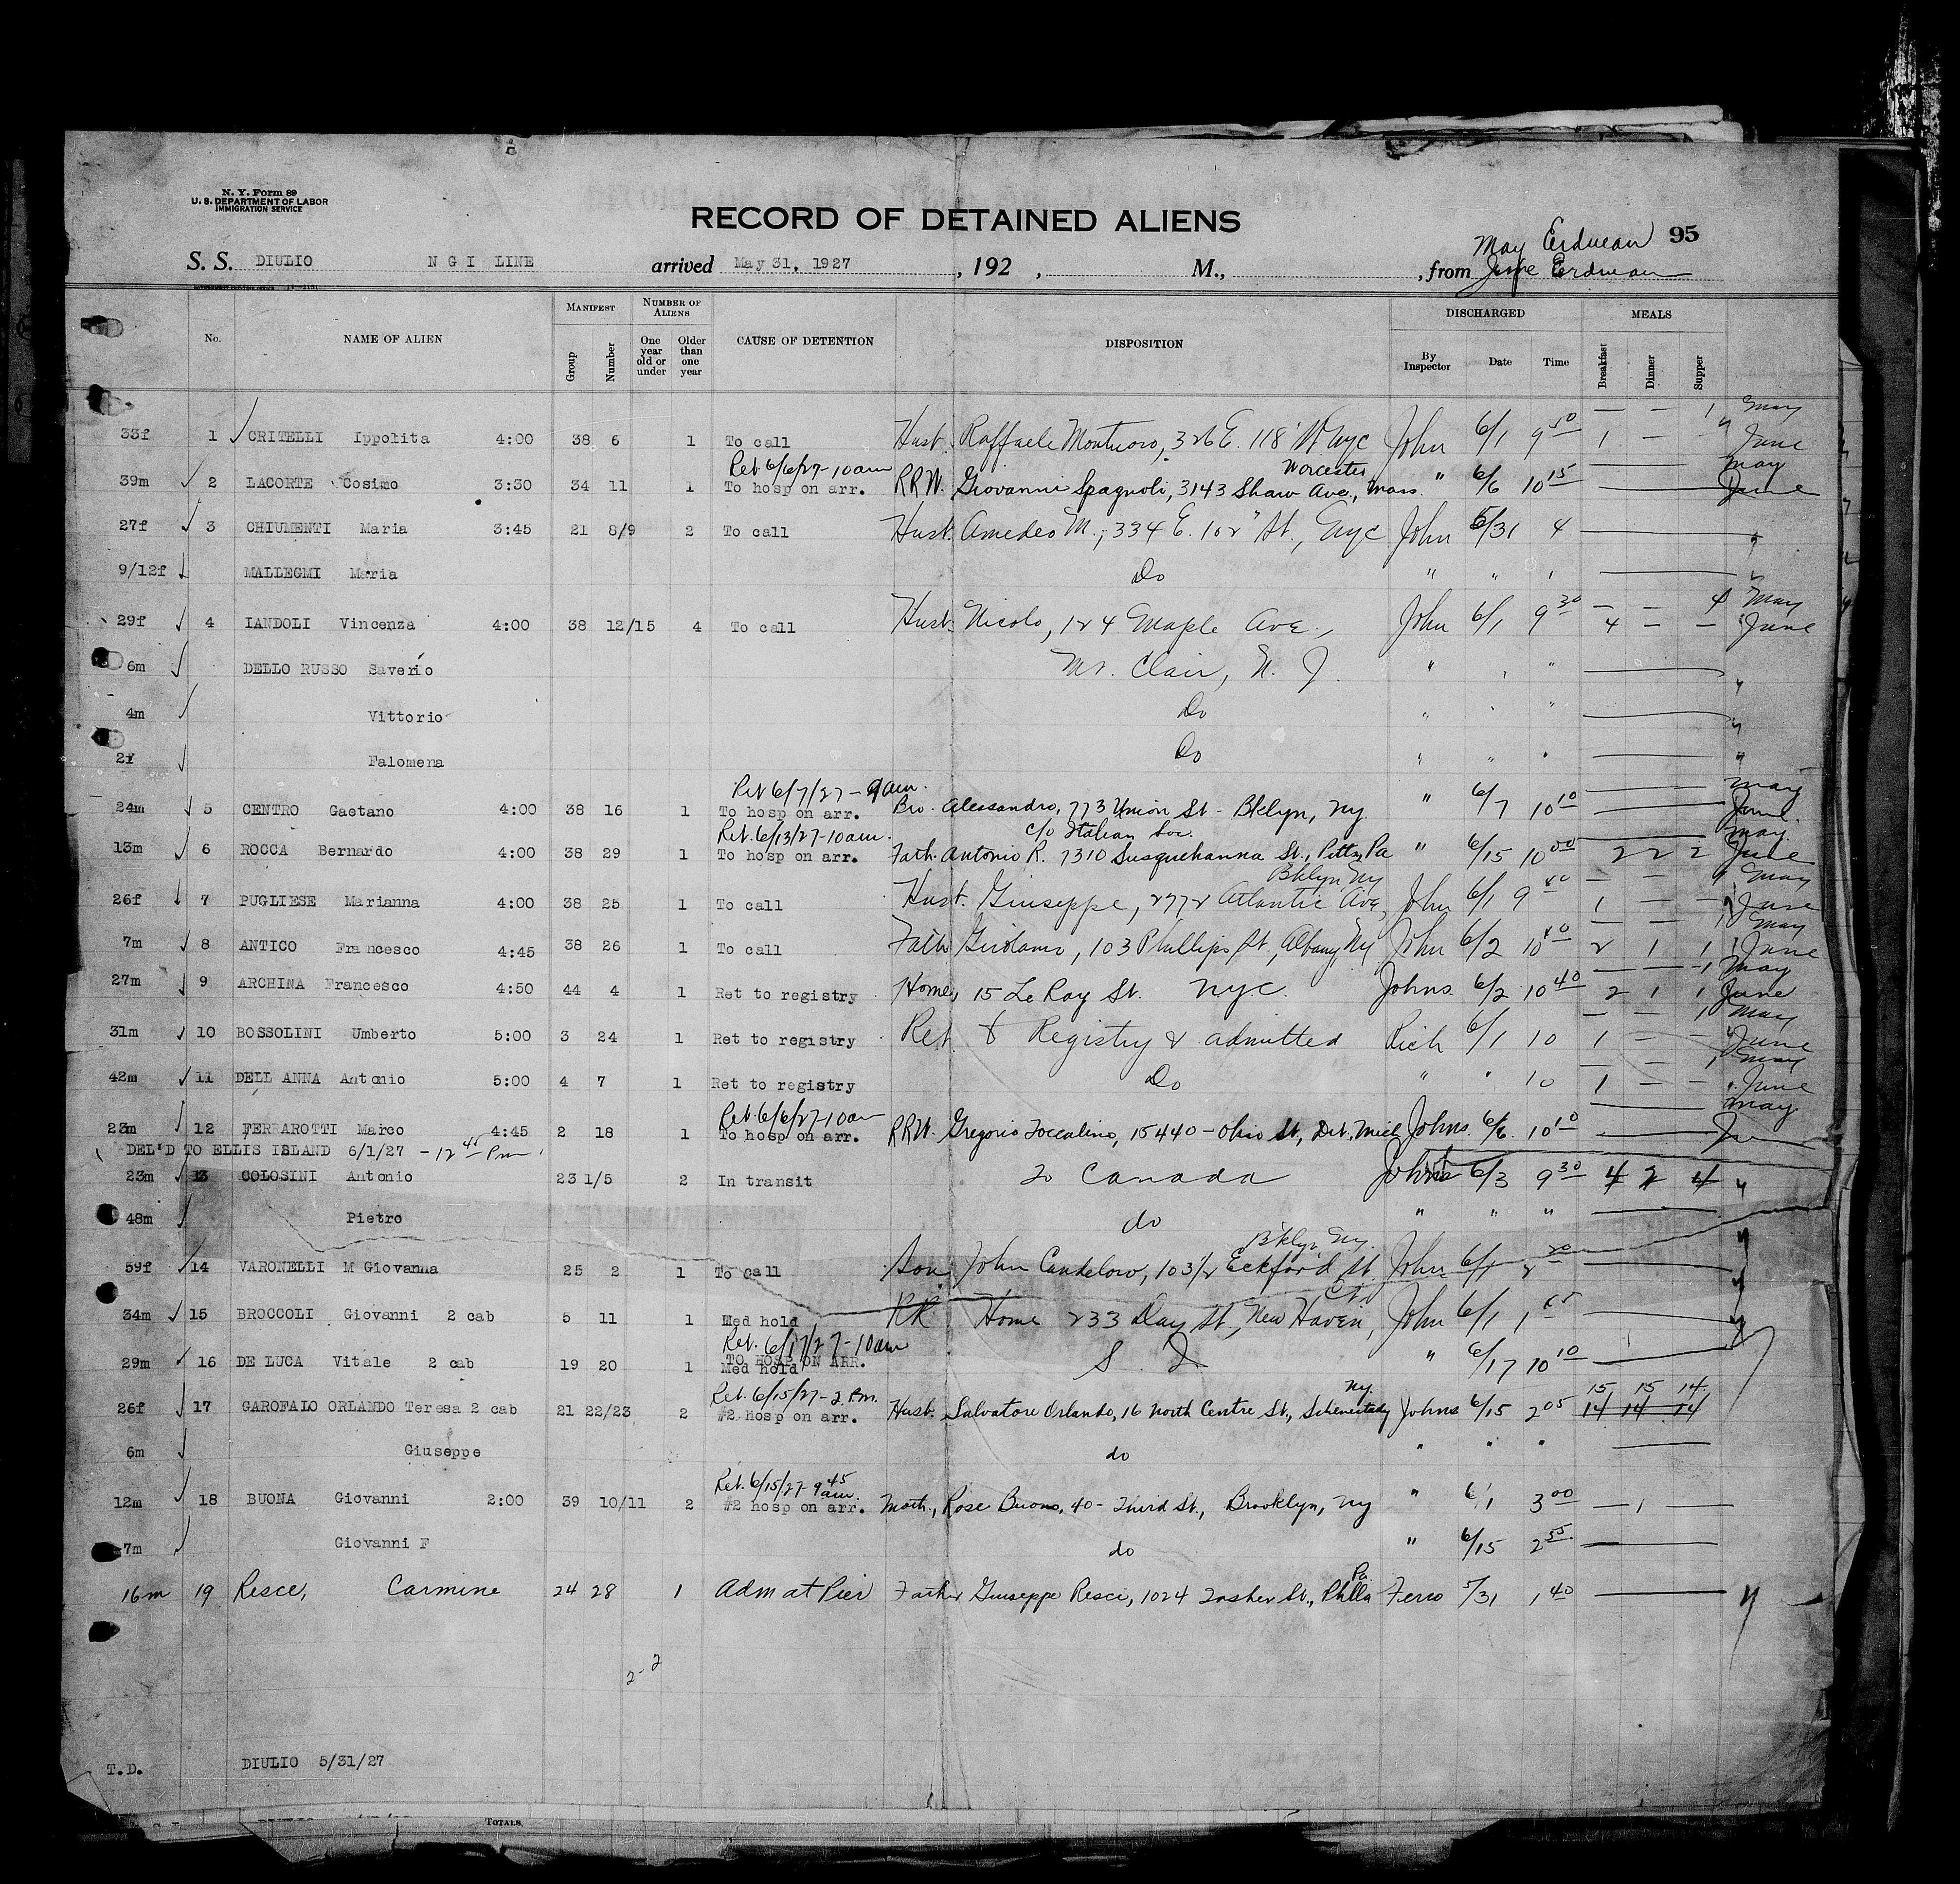 N. Y. Form 89
U. S. DEPARTMENT OF LABOR
IMMIGRATION SERVICE
RECORD OF DETAINED ALIENS
May Erdman 95
S. S. DIULIO N G I LINE arrived May 31, 1927, 192 , M., , from June Erdman
No. NAME OF ALIEN MANIFEST Group Number NUMBER OF ALIENS One year old or under Older than one year CAUSE OF DETENTION DISPOSITION DISCHARGED By Inspector Date Time MEALS Breakfast Dinner Supper
— — 1 May
33f 1 CRITELLI Ippolita 4:00 38 6 1 To call Hust. Raffaele Montuoro, 326 E. 118" St NYC John 6/1 9 50 1 — " June
Ret 6/6/27-10am Worcester May
39m 2 LACORTE Cosimo 3:30 34 11 1 To hosp on arr. RRW. Giovanni Spagnoli, 3143 Shaw Ave., Mass. " 6/6 10 15 June
27f 3 CHIUMENTI Maria 3:45 21 8/9 2 To call Hust. Amedeo M., 334 E. 102" St., NYC John 5/31 4
9/12f MALLEGMI Maria Do " " '
— — 4 May
29f 4 IANDOLI Vincenza 4:00 38 12/15 4 To call Hust. Nicolo, 124 Maple Ave., John 6/1 9 30 4 — — June
6m DELLO RUSSO Saverio Mt. Clair, N. J. " ' "
4m Vittorio Do " ' "
2f Falomena Do " " "
Ret 6/7/27-9am. May
24m 5 CENTRO Gaetano 4:00 38 16 1 To hosp on arr. Bro. Alessandro, 773 Union St - Bklyn, Ny. " 6/7 10 10 June
Ret. 6/13/27-10am. c/o Italian Soc. May
13m 6 ROCCA Bernardo 4:00 38 29 1 To hosp on arr. Fath. Antonio R. 7310 Susquehanna St., Pitts, Pa " 6/15 10 00 2 2 2 June
Bklyn, Ny — — 1 May
26f 7 PUGLIESE Marianna 4:00 38 25 1 To call Hust. Giuseppe, 2772 Atlantic Ave, John 6/1 9 40 1 — — June
— — 1 May
7m 8 ANTICO Francesco 4:45 38 26 1 To call Fath Girolamo, 103 Phillips St, Albany Ny John 6/2 10 40 2 1 1 June
— — 1 May
27m 9 ARCHINA Francesco 4:50 44 4 1 Ret to registry Home, 15 Le Roy St. N.Y.C. Johns. 6/2 10 40 2 1 1 June
— — 1 May
31m 10 BOSSOLINI Umberto 5:00 3 24 1 Ret to registry Ret. to Registry & admitted Rich 6/1 10 1 — — June
— — 1 May
42m 11 DELL ANNA Antonio 5:00 4 7 1 Ret to registry Do " " 10 1 — — " June
Ret. 6/6/27-10am May
23m 12 FERRAROTTI Marco 4:45 2 18 1 To hosp on arr. RRW. Gregorio Toccalino, 15440-Ohio St., Det. Mich Johns. 6/6. 10 10
DEL'D TO ELLIS ISLAND 6/1/27 - 12 45 Pm
23m 13 COLOSINI Antonio 23 1/5 2 In transit To Canada Johns 6/3 9 30 4 2 4 "
48m Pietro do " " "
Bklyn, Ny.
59f 14 VARONELLI M Giovanna 25 2 1 To call Son. John Candelow, 103 1/2 Eckford St. John 6/1 2 20
Ct.
34m 15 BROCCOLI Giovanni 2 cab 5 11 1 Med hold RR Home 233 Day St., New Haven, John 6/1 1 45
Ret. 6/17/27-10am
TO HOSP ON ARR.
29m 16 DE LUCA Vitale 2 cab 19 20 1 Med hold S. I. " 6/17 10 10
Ret. 6/15/27-2 Pm. Ny. 15 15 14
26f 17 GAROFALO ORLANDO Teresa 2 cab 21 22/23 2 #2 hosp on arr. Hust. Salvatore Orlando, 16 North Centre St., Schenectady Johns 6/15 2 05 14 14 14
6m Giuseppe do " " "
Ret. 6/15/27-9 45 am.
12m 18 BUONA Giovanni 2:00 39 10/11 2 #2 hosp on arr. Moth., Rose Buono, 40 - Third St., Brooklyn, Ny " 6/1 3 00 — 1 —
7m Giovanni F do " 6/15 2 55
Pa.
16m 19 Resce, Carmine 24 28 1 Adm at Pier Father Giuseppe Resci, 1024 Tasker St., Phila Ferro 5/31 1 40 "
2-2
T.D. DIULIO 5/31/27
TOTALS,